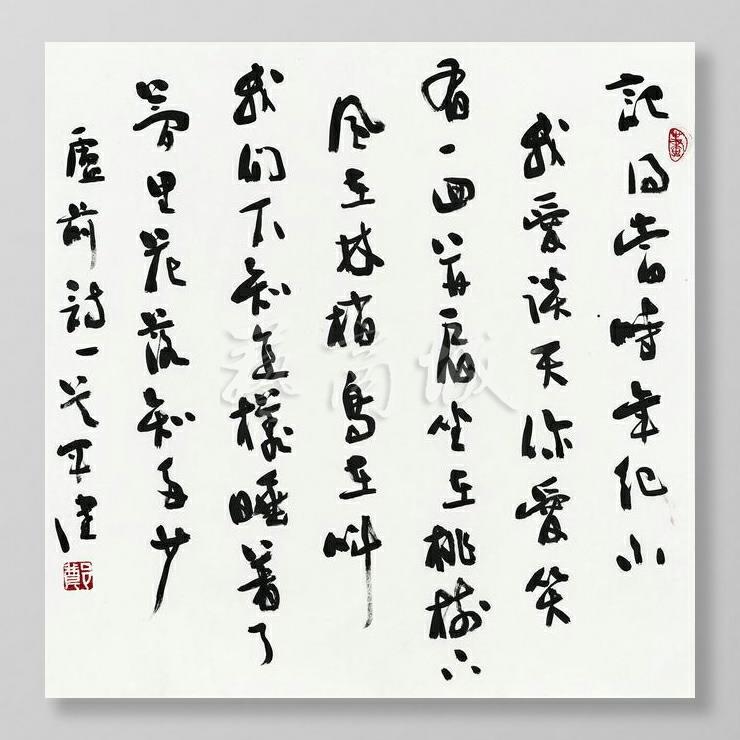 記得當時年紀小
我愛談天你愛笑
有一回并肩坐在桃樹下
風在林梢鳥在叫
我們不知怎樣睡着了
夢里花落知多少
盧前詩一首
藝商城